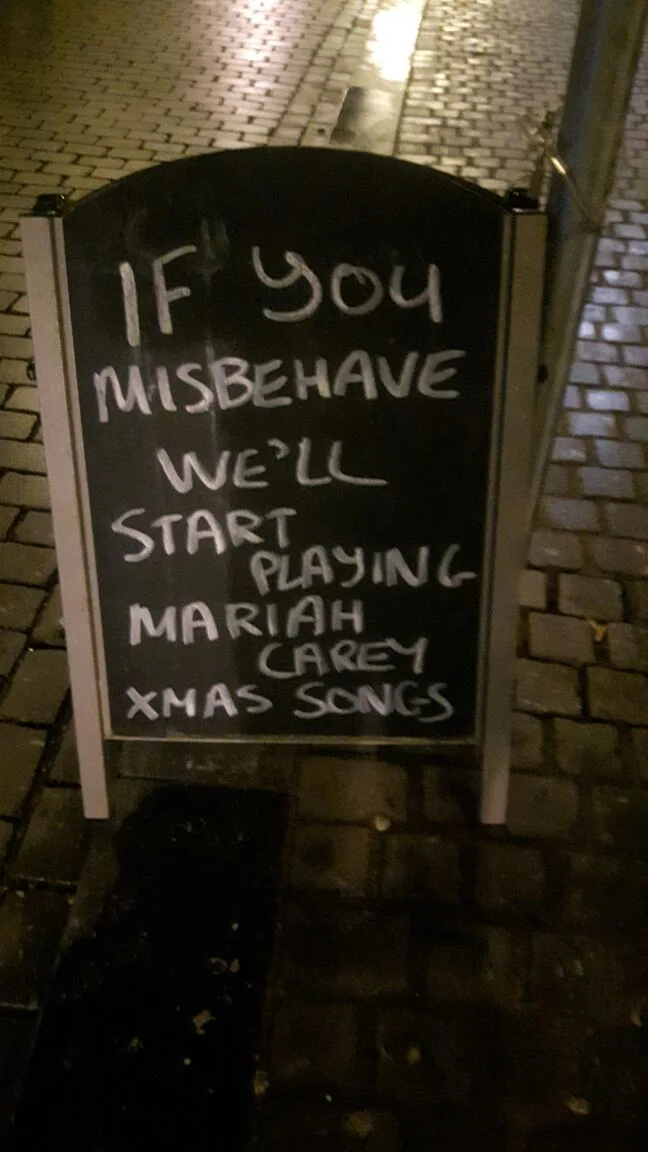 IF YOU
MISBEHAVE
WE'LL
START
PLAYING
MARIAH
CAREY
XMAS SONGS